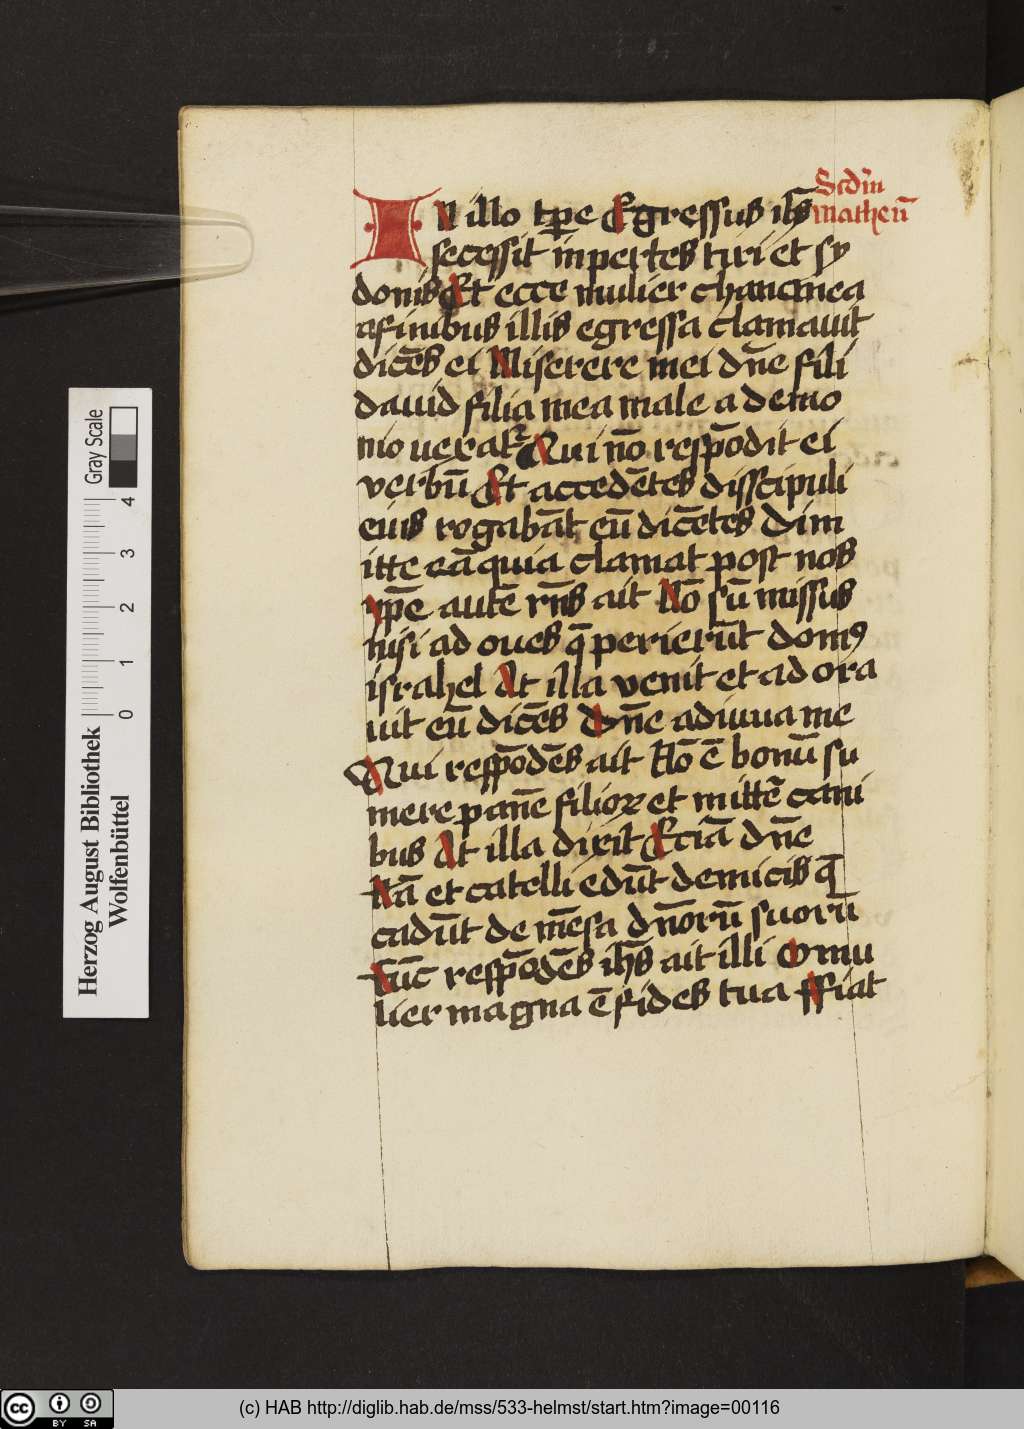 Scdm̄
IN illo tꝑe Egressus ih̄s matheū
secessit in pertes tiri et sy
donis Et ecce mulier chananea
afinibus illis egressa clamauit
dicēs ei Miserere mei dn̄e fili
dauid filia mea male a demo
nio uexat᷑ Qui nō respōdit ei
verbū Et accedētes disscipuli
eius rogabāt eū dicētes Dim
itte eā quia clamat post nos
ypē autē rn̄s ait Nō sū missus
nisi ad oues q̄ perierūt domꝰ
israhel At illa venit et ad ora
uit eū dicēs dn̄e adiuua me
Qui respōdēs ait Nō ē bonū su
mere panē filioꝝ et mittē cani
bus At illa dixit Eciā dn̄e
Nā et catelli edūt de micis q̄
cadūt de mēsa dn̄orū suorū
Tūc respōdēs ih̄s ait illi O mu
lier magna ē fides tua ffiat
Herzog August Bibliothek
Wolfenbüttel
0 1 2 3 4
Gray Scale
cc BY SA
(c) HAB http://diglib.hab.de/mss/533-helmst/start.htm?image=00116